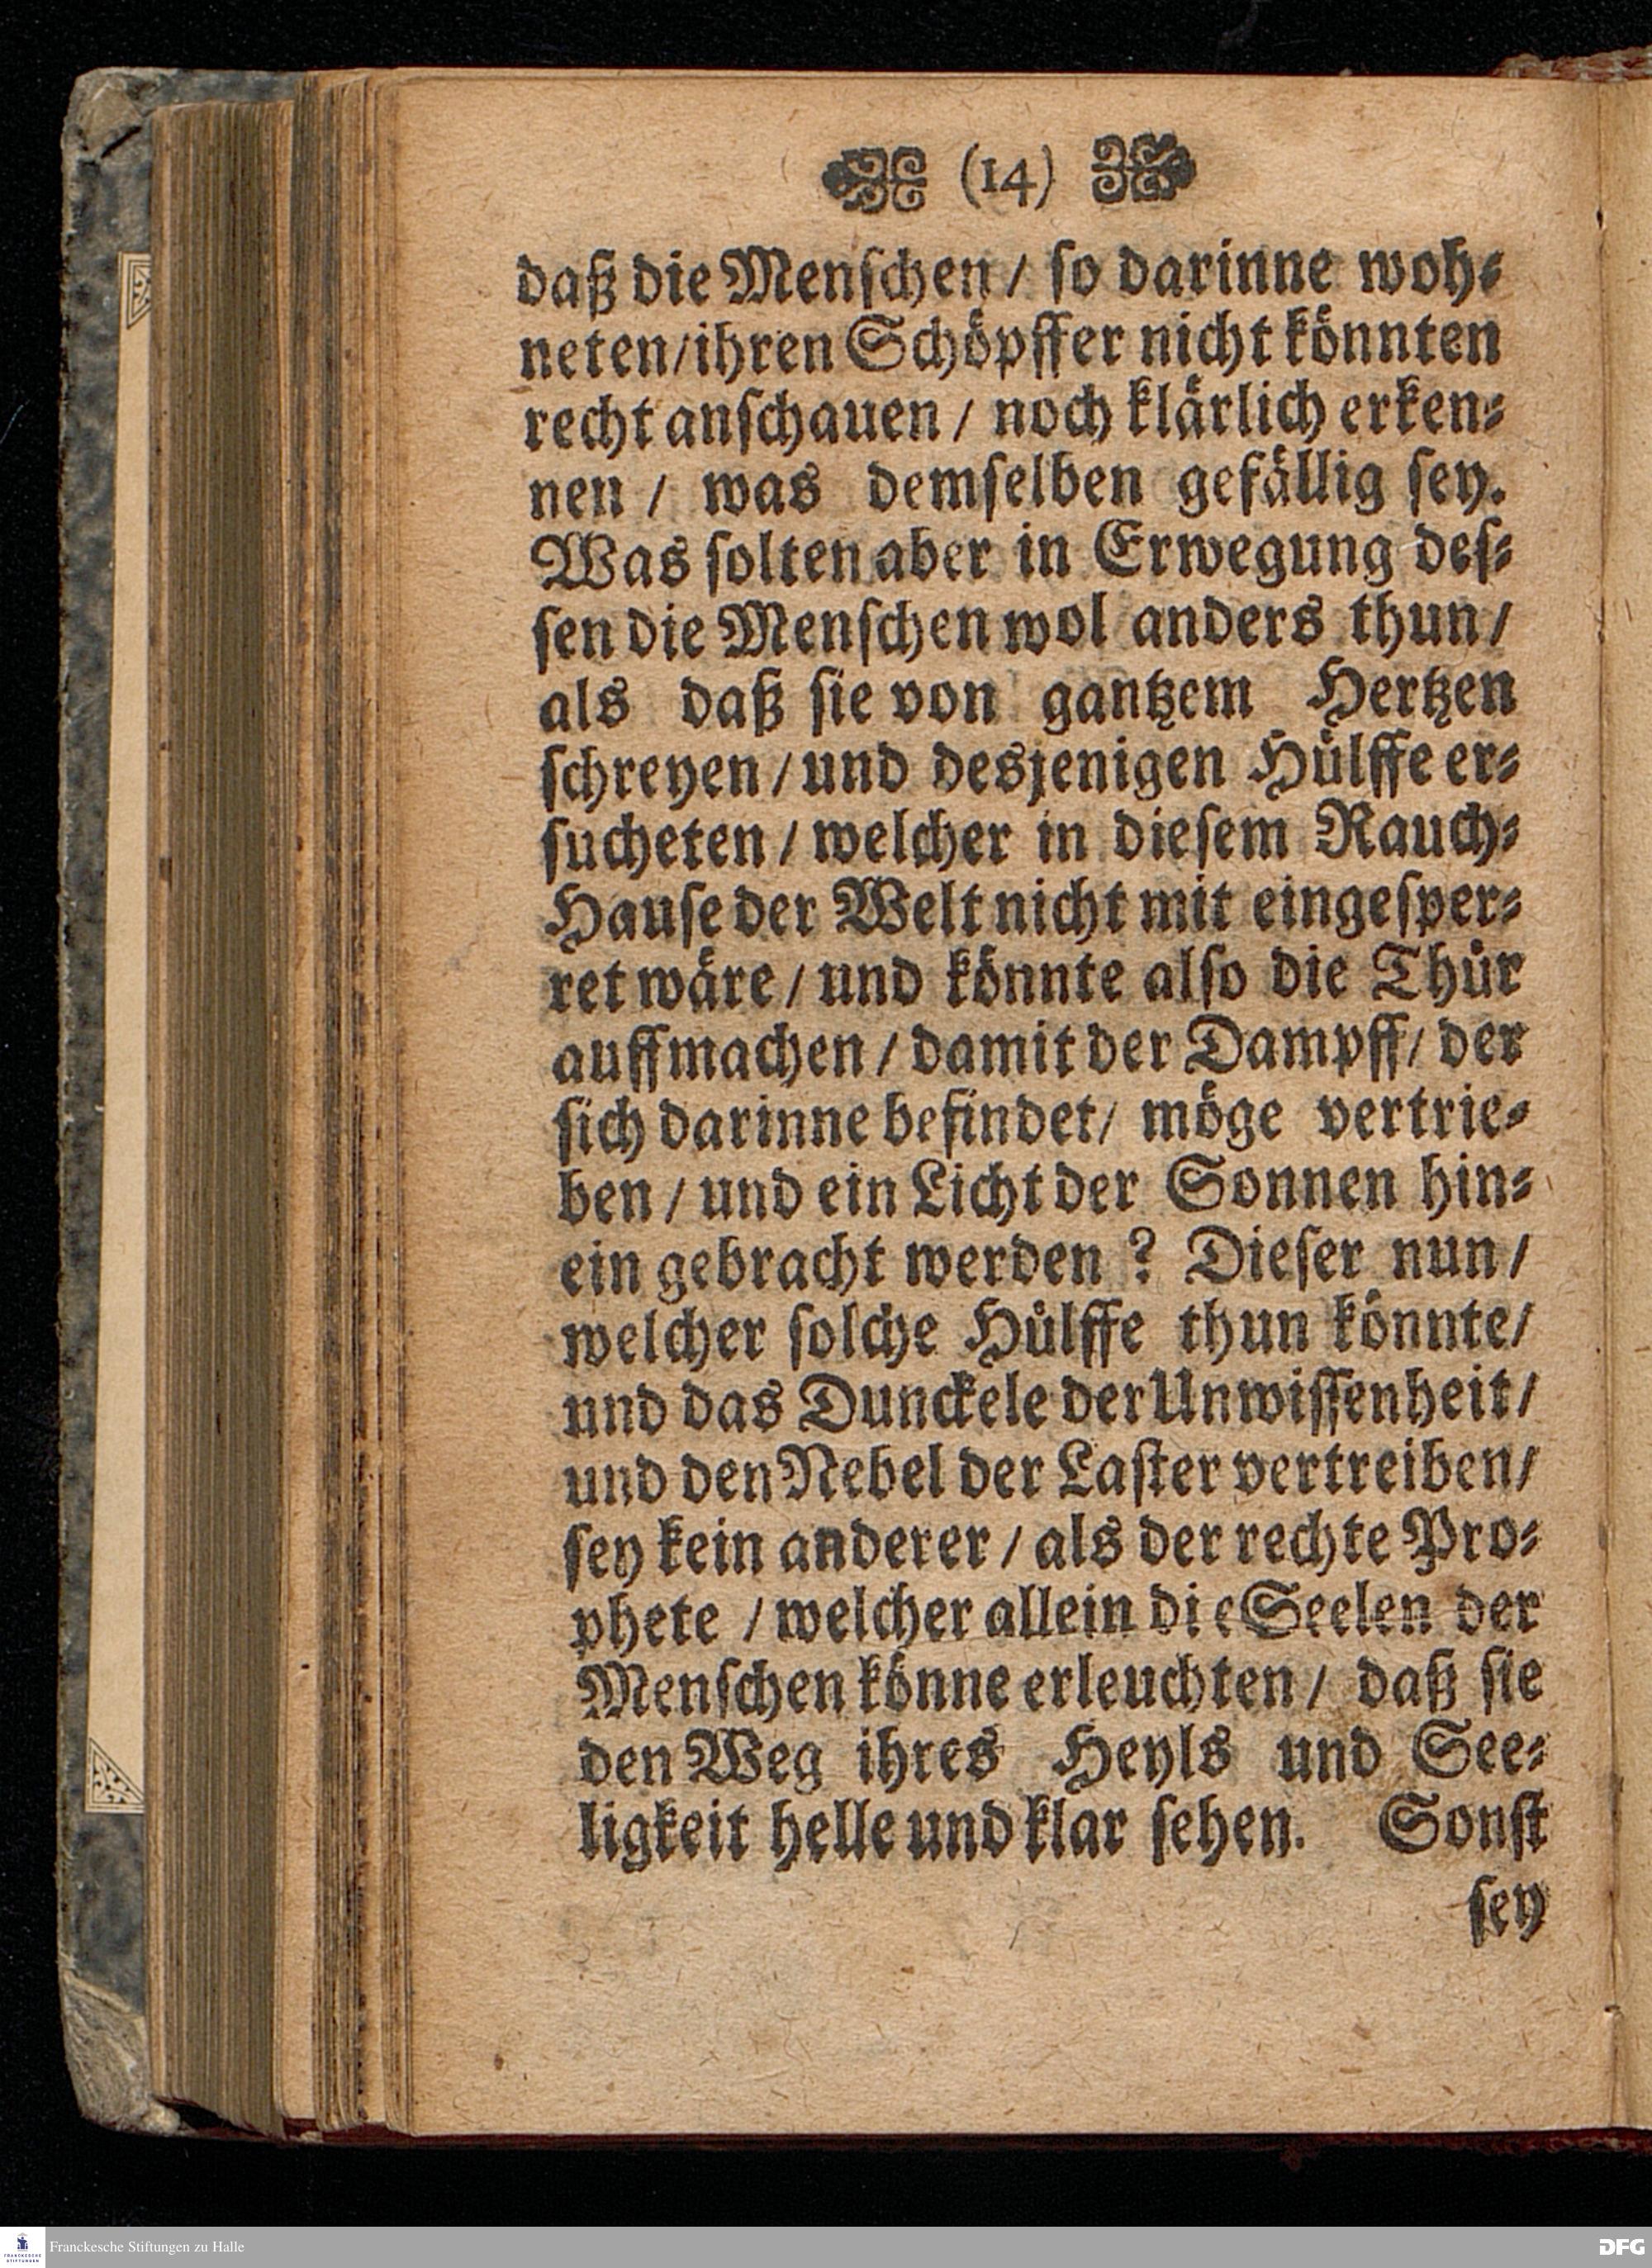 (14)
daß die Menſchen / ſo darinne woh⸗
neten/ihren Schöpffer nicht könnten
recht anſchauen / noch klärlich erken⸗
nen / was demſelben gefällig ſey.
Was ſolten aber in Erwegung deſ⸗
ſen die Menſchen wol anders thun /
als daß ſie von gantzem Hertzen
ſchreyen / und desjenigen Hülffe er⸗
ſucheten / welcher in dieſem Rauch⸗
Hauſe der Welt nicht mit eingeſper⸗
ret wäre / und könnte alſo die Thür
auffmachen / damit der Dampff / der
ſich darinne befindet / möge vertrie⸗
ben / und ein Licht der Sonnen hin⸗
ein gebracht werden ? Dieſer nun /
welcher ſolche Hülffe thun könnte /
und das Dunckele der Unwiſſenheit /
und den Nebel der Laſter vertreiben /
ſey kein anderer / als der rechte Pro⸗
phete / welcher allein die Seelen der
Menſchen könne erleuchten / daß ſie
den Weg ihres Heyls und See⸗
ligkeit helle und klar ſehen. Sonſt
ſey
FRANCKESCHE STIFTUNGEN
Franckesche Stiftungen zu Halle
DFG